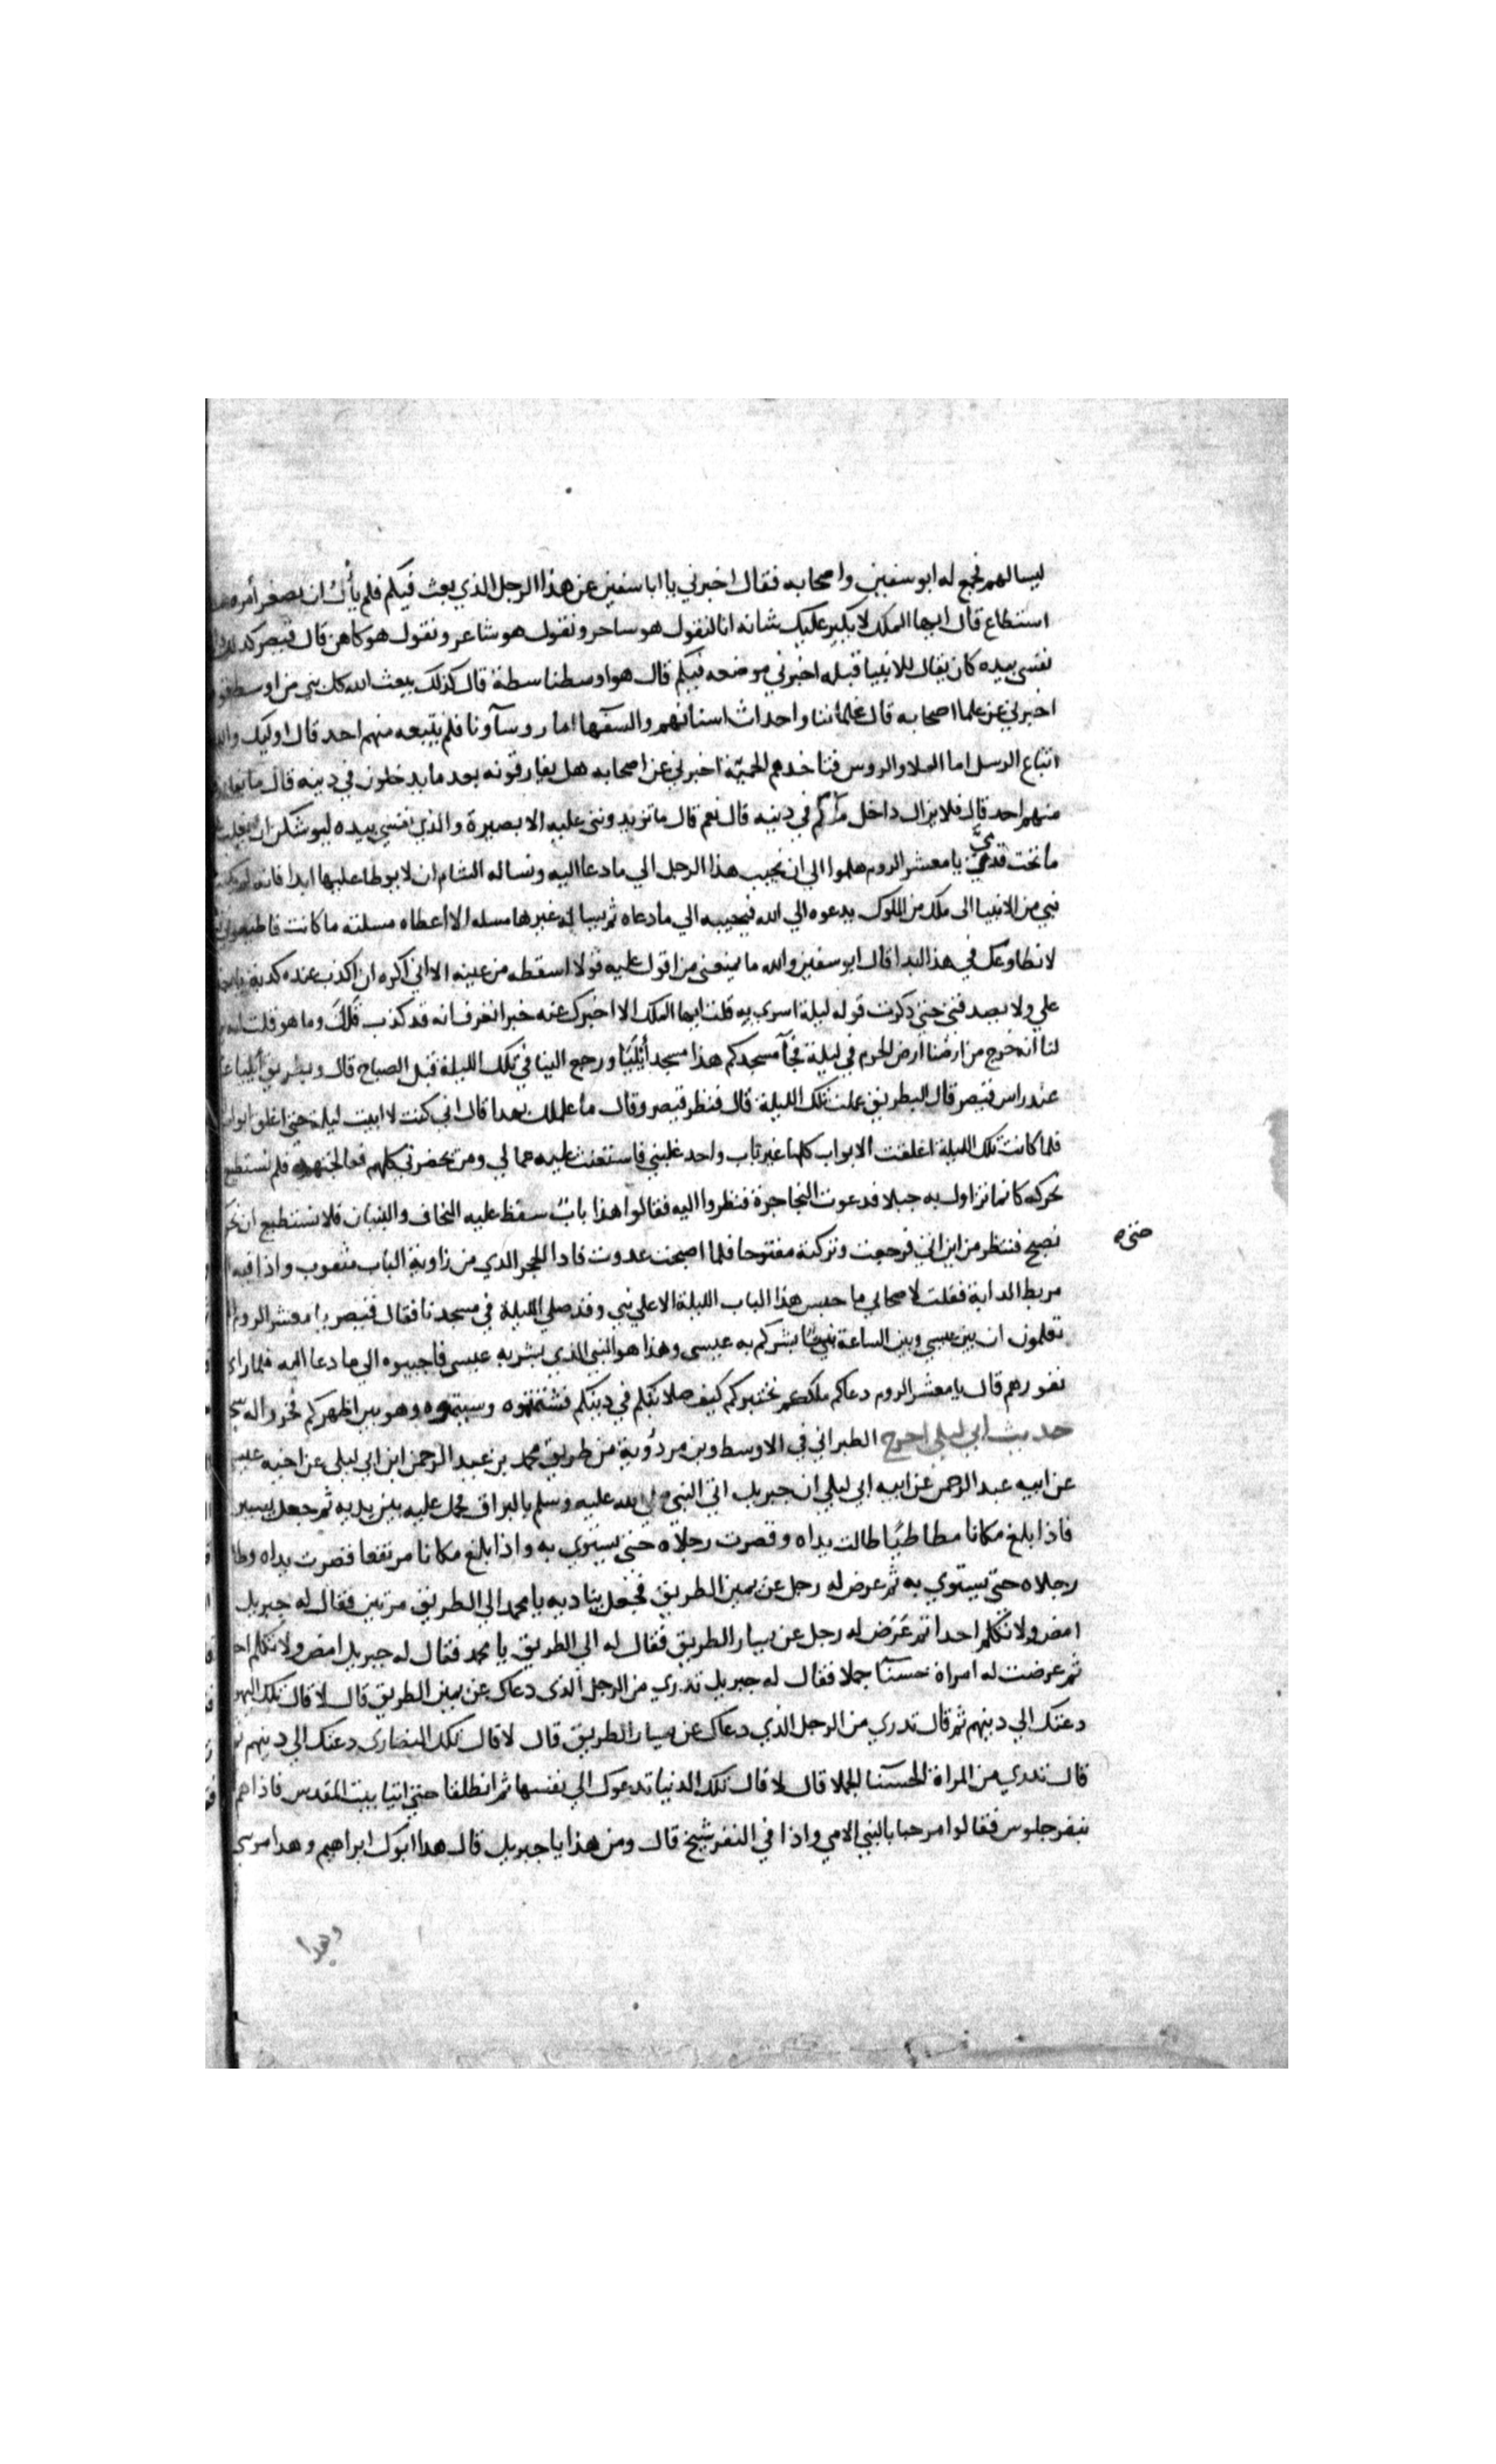 ليسالهم فجمع له ابو سفين واصحابه فقال اخبرني يا ابا سفين عن هذا الرجل الذي بعث فيكم فلم يأل ان يصغر أمره ما
استطاع قال ايها الملك لا يكبر عليك شانه انا لنقول هو ساحر ونقول هو شاعر ونقول هو كاهن قال قيصر كذلك والذي
نفسي بيده كان يقال للانبيا قبله اخبرني موضعه فيكم قال هو اوسطنا سطة قال كذلك يبعث الله كل نبي من اوسط قومه
اخبرني عن علما اصحابه قال غلماننا واحداث اسنانهم والسفها اما روسآونا فلم يتبعه منهم احد قال اوليك والله
اتباع الرسل اما الملا والروس فتاخدهم الحميّة اخبرني عن اصحابه هل يفارقونه بعد ما يدخلون في دينه قال ما يفارقه
منهم احد قال فلا يزال داخل منكم في دينه قال نعم قال ما تزيدونني عليه الا بصيرة والذي نفسي بيده ليوشكن ان يغلب على
ما تحت قدمي يا معشر الروم هلموا الي ان نجيب هذا الرجل الي ما دعا اليه ونساله الشام ان لا يوطا علينا ابدا فانه لم يكتب
نبي من الانبيا الى ملك من الملوك يدعوه الي الله فيجيبه الي ما دعاه ثم يساله غيرها مسله الا أعطاه مسلته ما كانت فاطيعوني
لا نطاوعك في هذا ابدا قال ابو سفين والله ما يمنعني من اقول عليه قولا اسقطه من عينه الا اني اكره ان اكذب عنده كدبة ياخذها
علي ولا يصدقني حتي ذكرت قوله ليلة اسري به قلت ايها الملك الا اخبرك عنه خبرا تعرف انه قد كذب قال وما هو قلت انه يزعم
لنا انه خرج من ارضنا أرض الحرم في ليلة فجآ مسجدكم هذا مسجد أيليا ورجع الينا في تلك الليلة قبل الصباح قال وبطريق أيليا
عند راس قيصر قال البطريق علمت تلك الليلة قال فنظر قيصر وقال ما علمك بهدا قال اني كنت لا ابيت ليلة حتي اغلق ابواب
فلما كانت تلك الليلة اغلقت الابواب كلها غير باب واحد غلبني فاستعنت عليه عمالي ومن يحضرني كلهم فعالجته فلم نستطيع
نحركه كانما نزاول به جبلا فدعوت النجاجرة فنظروا اليه فقالوا هذا باب سقط عليه النجاف والبنيان فلا نستطيع ان نحركه
حتي ه
نصبح فننظر من اين اتي فرجعت وتركته مفتوحا فلما اصبحت عدوت فادا الحجر الدي من زاوية الباب مثقوب واذا فيه
مربط الدابة فقلت لاصحابي ما حبس هذا الباب الليلة الا علي نبي وقد صلي الليلة في مسجدنا فقال قيصر يا معشر الروم
تعلمون ان بين عيسي وبين الساعة نبيًّا بشركم به عيسى وهذا هو النبي الذي بشر به عيسي فاجيبوه الي ما دعا اليه فلما راي
نفورهم قال يا معشر الروم دعاكم ملككم يختبركم كيف صلابتكم في دينكم فشتمتموه وسببتموه وهو بين اظهركم فخروا له سجدا
حديث ابي ليلي اخرج الطبراني في الاوسط وبن مردوية من طريق محمد بن عبد الرحمن ابن ابي ليلى عن اخيه عيسى
عن ابيه عبد الرحمن عن ابيه ابي ليلي ان جبريل اتي النبي صلي الله عليه وسلم بالبراق فحمل عليه بين يديه ثم جعل يسير
فاذا بلغ مكانا مطاطيًا طالت يداه وقصرت رجلاه حتي يستوي به واذا بلغ مكانا مرتفعا قصرت يداه وطالت
رجلاه حتي يستوي به ثم عرض له رجل عن يمين الطريق فجعل يناديه يا محمد الي الطريق مرتين فقال له جبريل
امض ولا تكلم احدا ثم عَرَض له رجل عن يسار الطريق فقال له الي الطريق يا محمد فقال له جبريل امض ولا تكلم احدا
ثم عرضت له امراة حسنآ جملا فقال له جبريل تدري من الرجل الذى دعاك عن يمين الطريق قال لا قال تلك اليهود
دعتك الي دينهم ثم قال تدري من الرجل الذي دعاك عن يسار الطريق قال لا قال تلك النصارى دعتك الي دينهم ثم
قال تدري من المراة الحسنآ الجملا قال لا قال تلك الدنيا تدعوك الي نفسها ثم انطلقا حتي اتيا بيت المقدس فاذا هم
بنفر جلوس فقالوا مرحبا بالنبي الامي واذا في النفر شيخ قال ومن هذا يا جبريل قال هدا ابوك ابراهيم وهدا موسي
وهدا